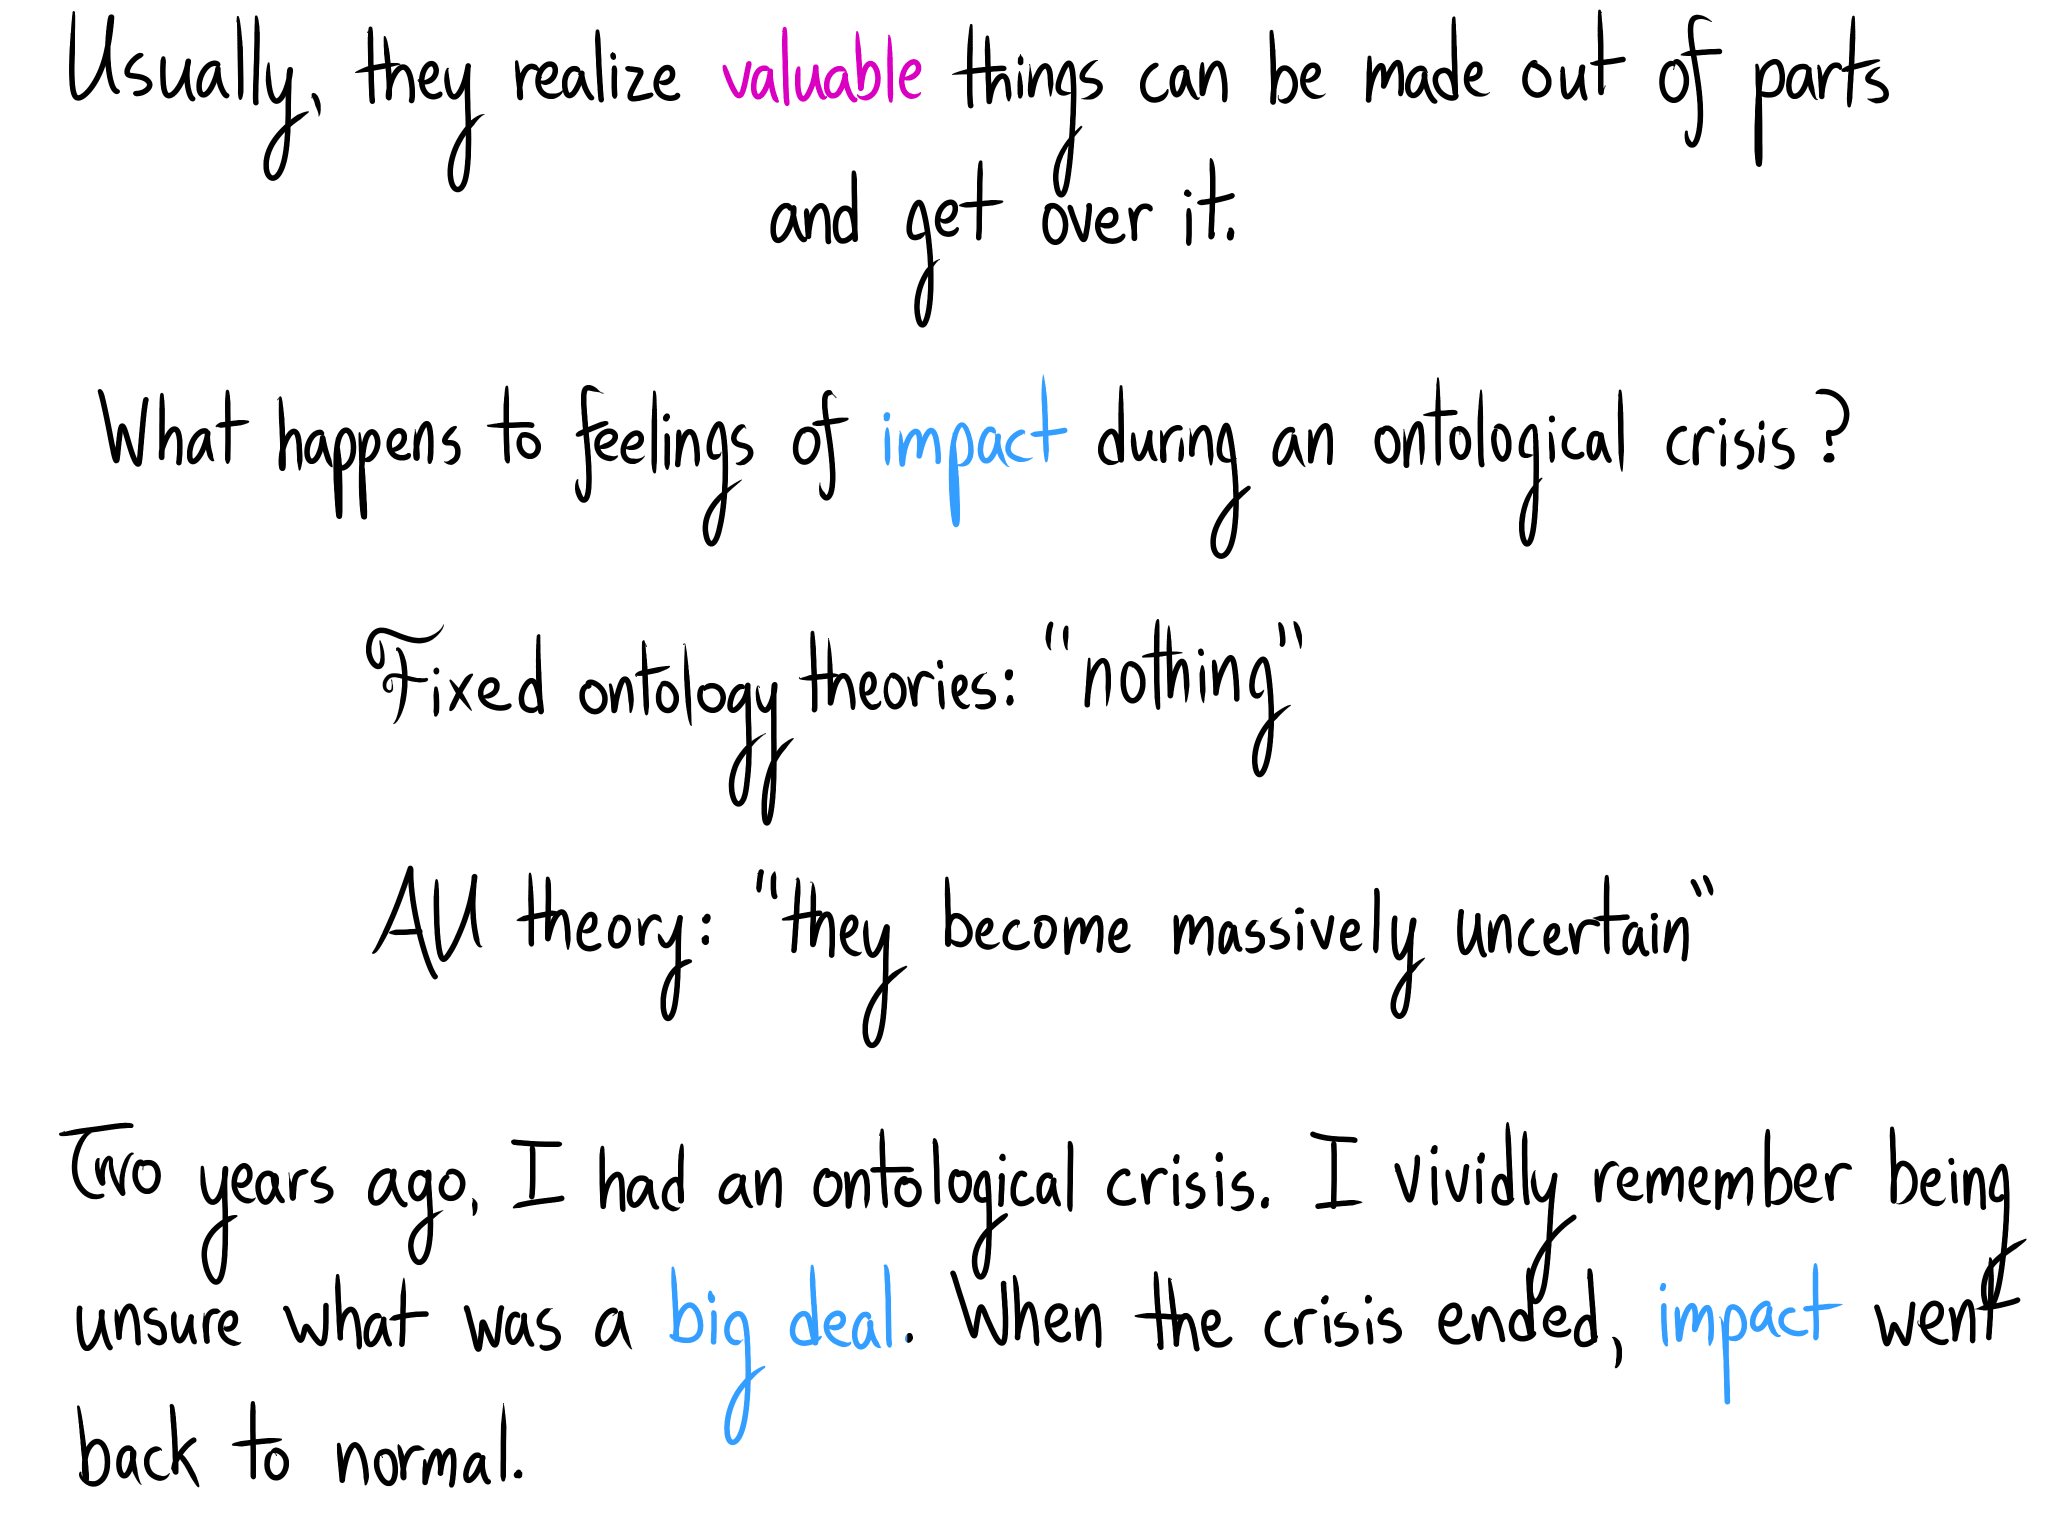 Usually, they realize valuable things can be made out of parts
and get over it.
What happens to feelings of impact during an ontological crisis?
Fixed ontology theories: "nothing"
AU theory: "they become massively uncertain"
Two years ago, I had an ontological crisis. I vividly remember being
unsure what was a big deal. When the crisis ended, impact went
back to normal.